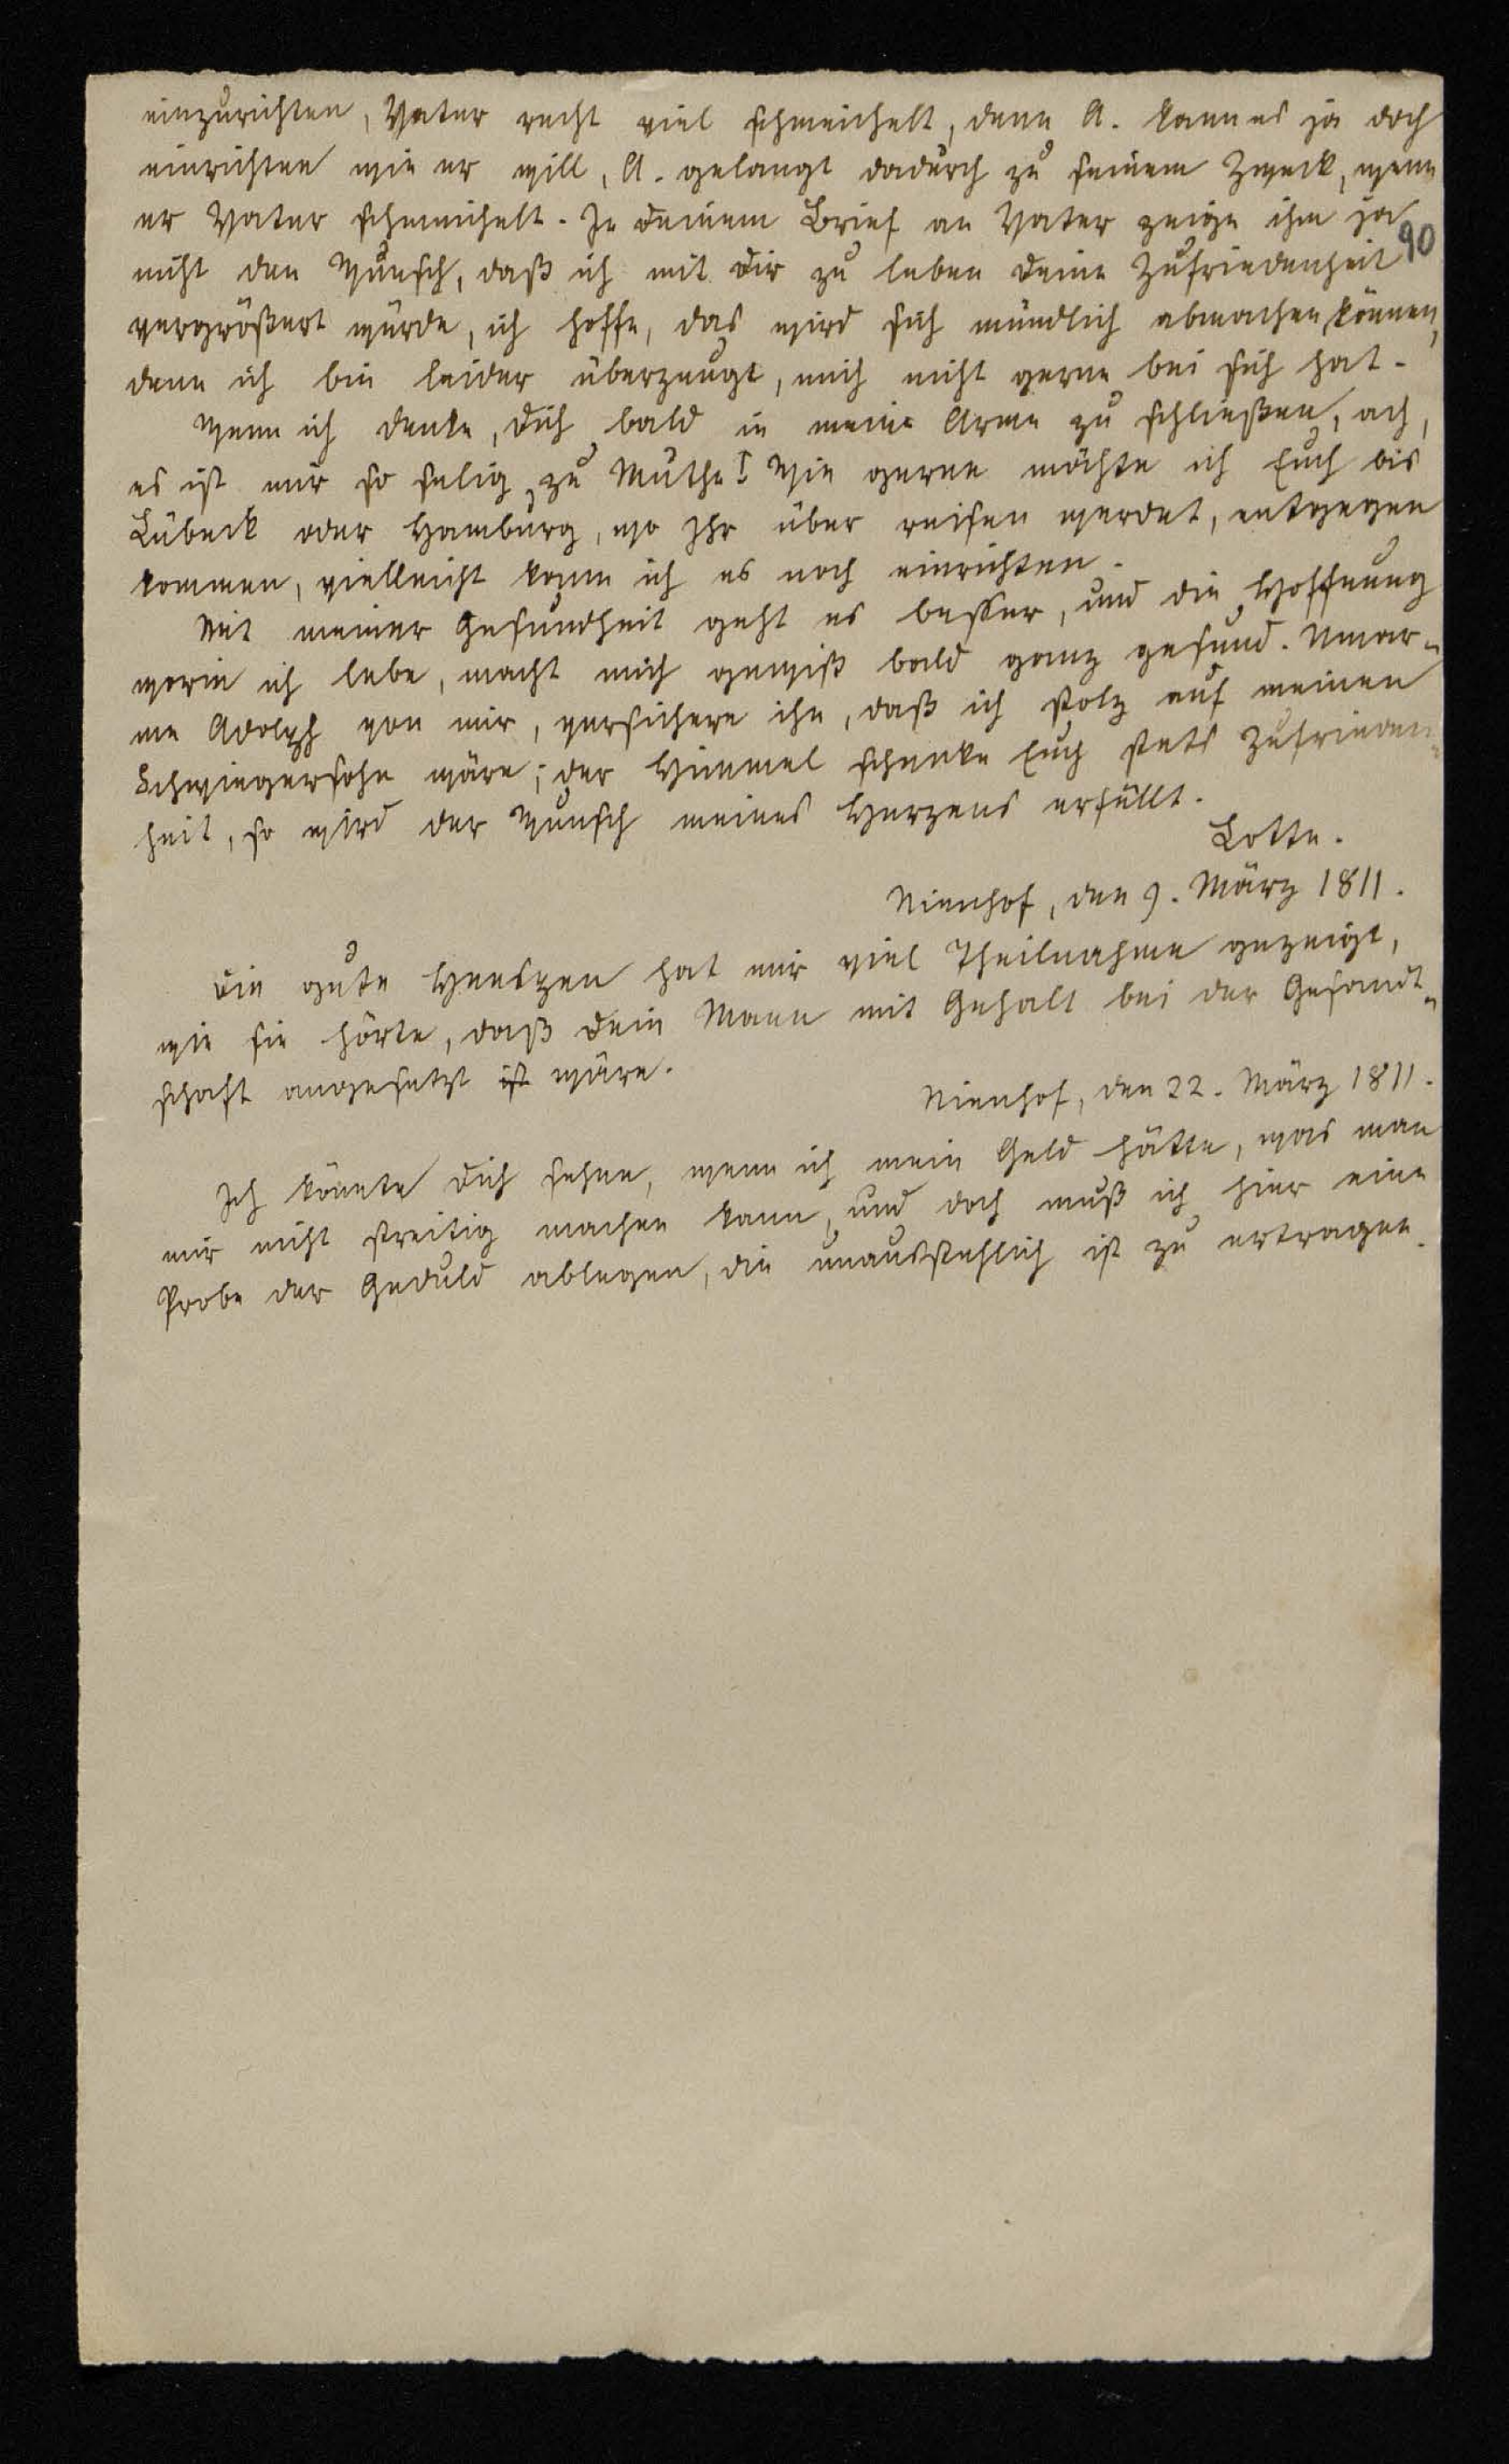 einzurichten, Vater recht viel schmeichelt, denn A. kann es ja doch
einrichten wie er will, A. gelangt dadurch zu seinem Zweck, wenn
er Vater schmeichelt. In Deinem Brief an Vater zeige ihm ja
90
nicht den Wunsch, daß ich mit Dir zu leben Deine Zufriedenheit
vergrößert würde, ich hoffe, das wird sich mündlich abmachen können,
denn ich bin leider überzeugt, mich nicht gerne bei sich hat.
Wenn ich denke, Dich bald in meine Arme zu schließen, ach,
es ist mir so selig zu Muthe! Wie gerne möchte ich Euch bis
Lübeck oder Hamburg, wo Ihr über reisen werdet, entgegen
kommen, vielleicht kann ich es noch einrichten.
Mit meiner Gesundheit geht es besser, und die Hoffnung
worin ich lebe, macht mich gewiß bald ganz gesund. Umar-
me Adolph von mir, versichere ihn, daß ich stolz auf meinen
Schwiegersohn wäre; der Himmel schenke Euch stets Zufrieden-
heit, so wird der Wunsch meines Herzens erfüllt.
Lotte.
Nienhof, den 9. März 1811.
Die gute hat mir viel Theilnahme gezeigt,
wie sie hörte, daß Dein Mann mit Gehalt bei der Gesandt-
schaft angesetzt ist wäre.
Nienhof, den 22. März 1811.
Ich könnte Dich sehen, wenn ich mein Geld hätte, was man
mir nicht streitig machen kann, und doch muß ich hier eine
Probe der Geduld ablegen, die unausstehlich ist zu ertragen.